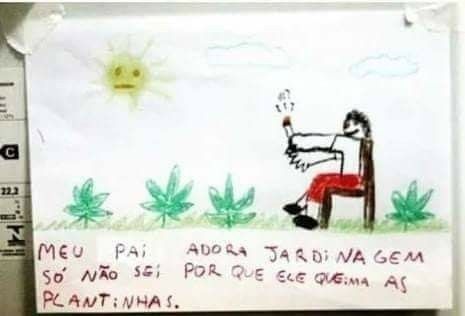 C
22,2
MEU PAI ADORA JARDINAGEM
SÓ NÃO SEI POR QUE ELE QUEIMA AS
PLANTINHAS.